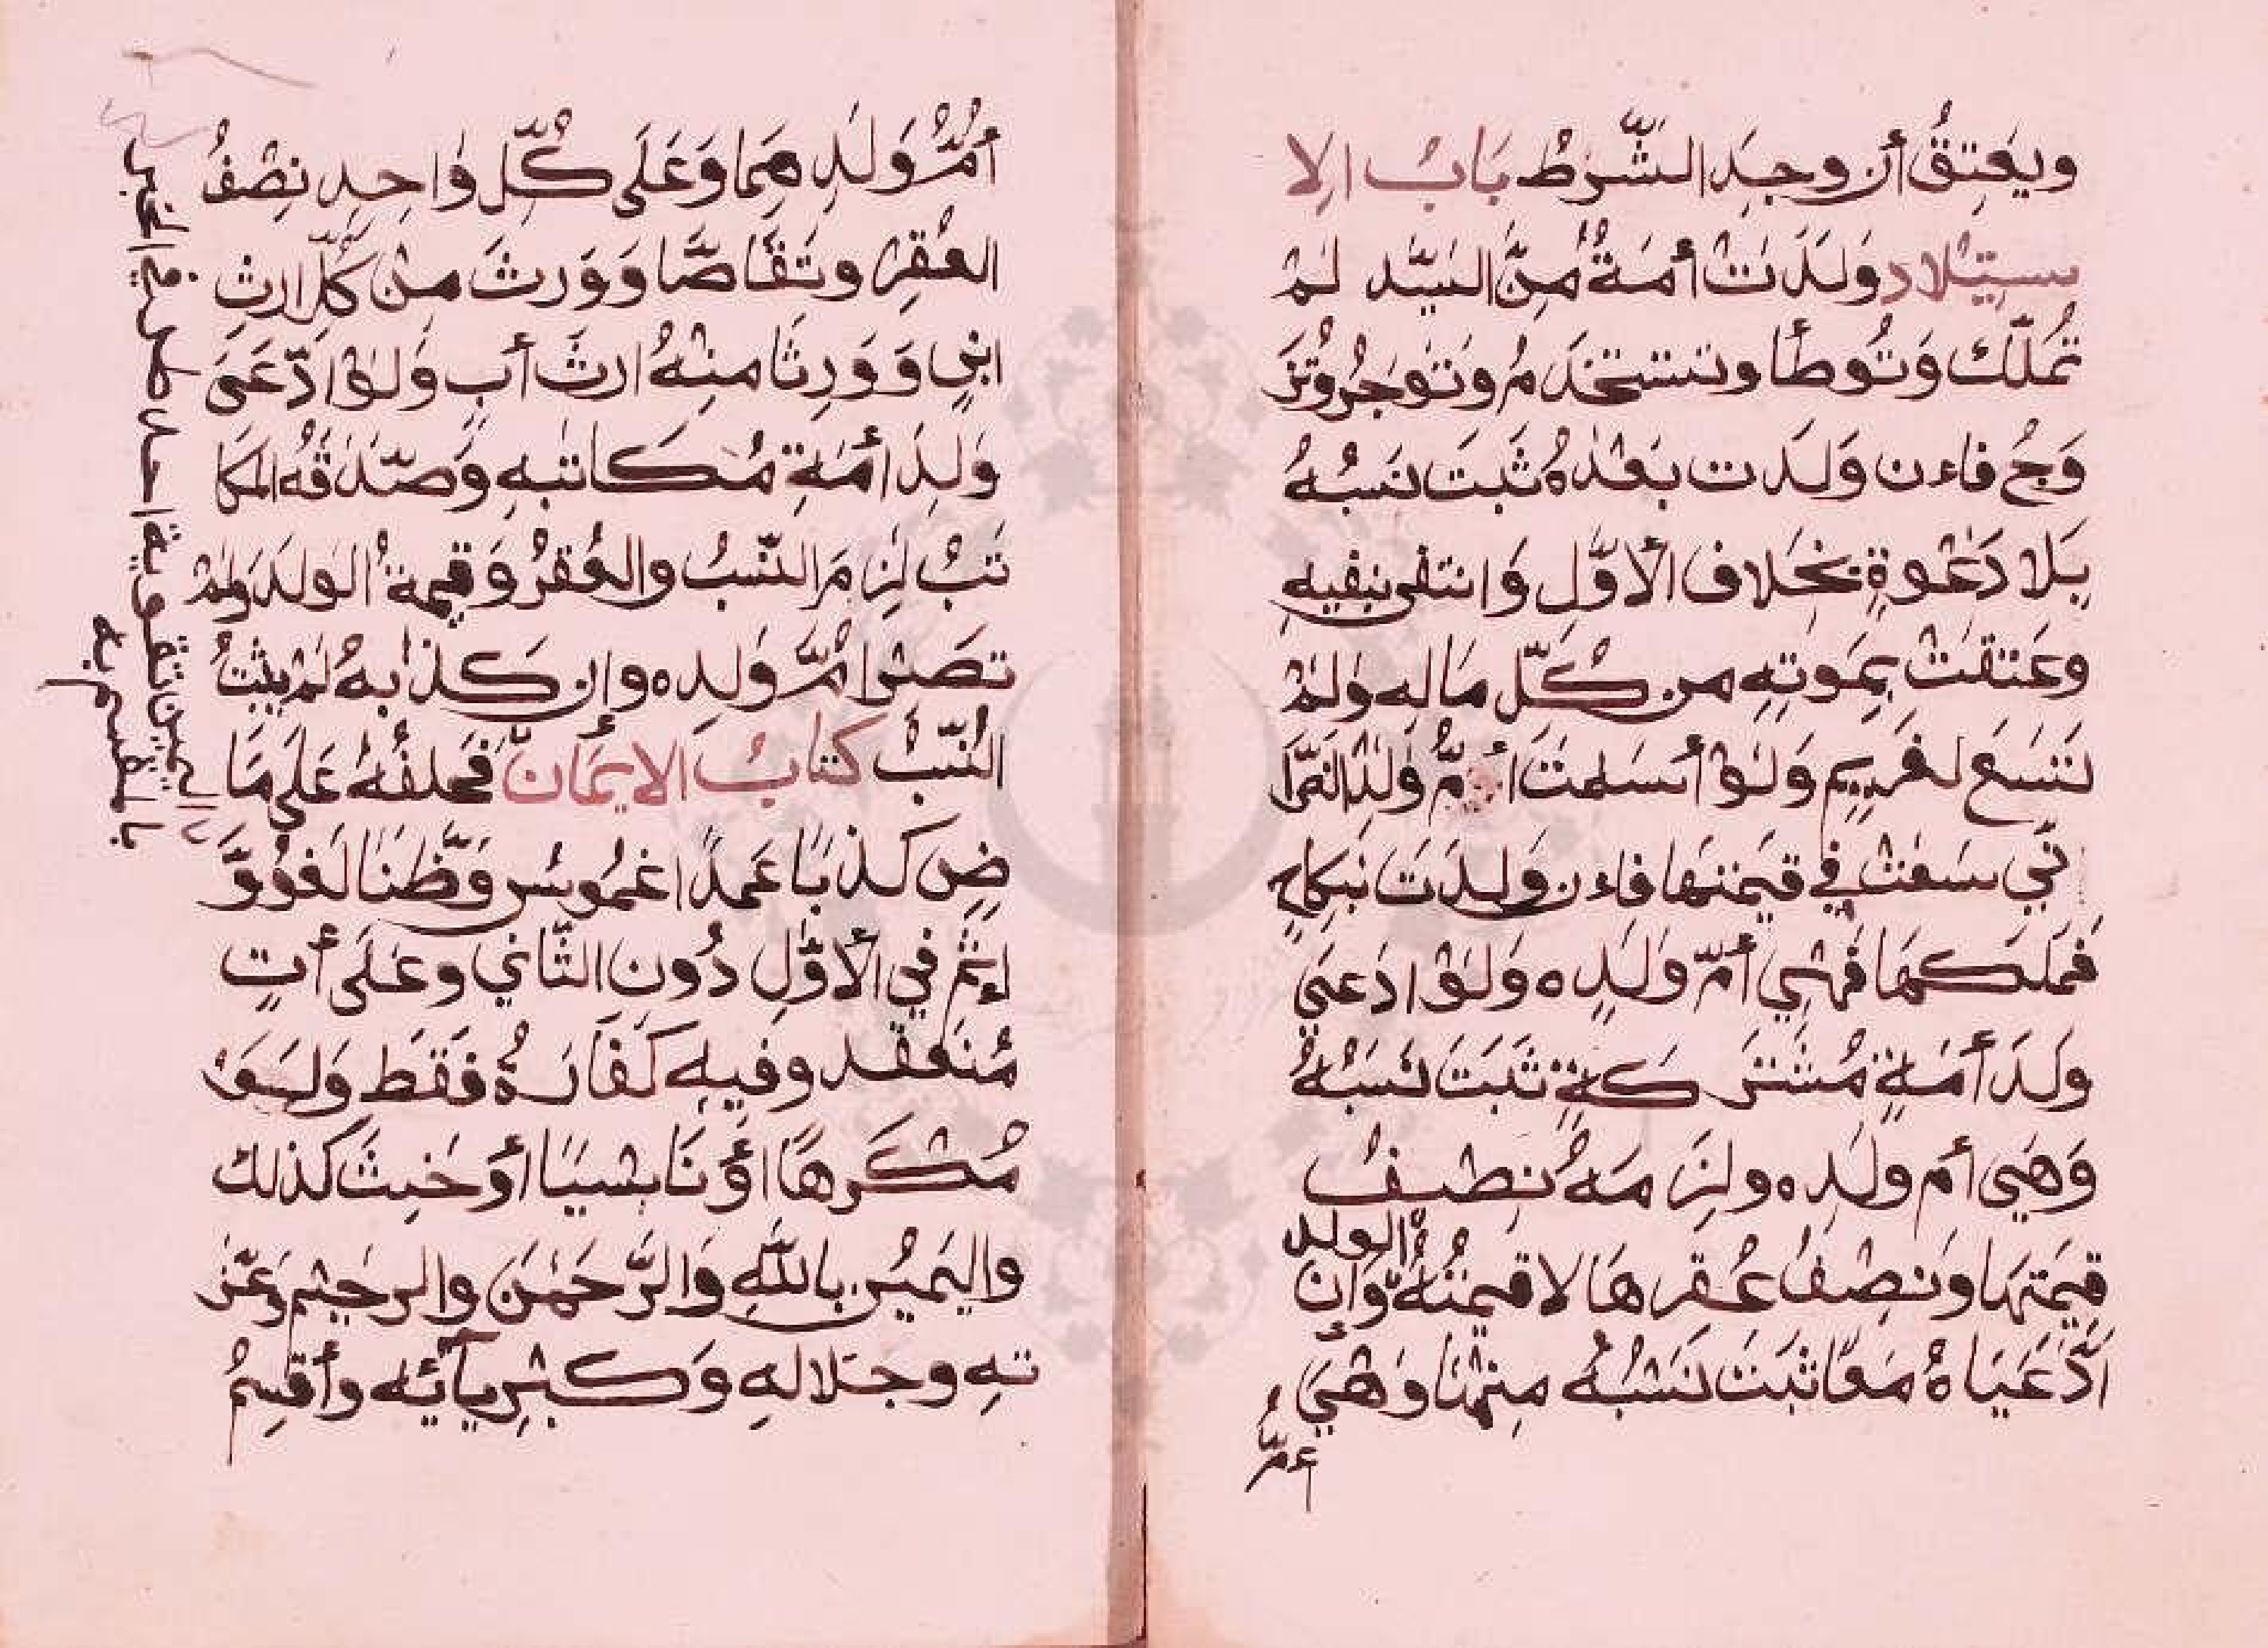 ويعتق أن وجد الشرط باب الا
ستيلاد ولدت أمة من السيد لم
تملك وتوطأ وتستخدم وتوجر وتز
وج فاءن ولدت بعده ثبت نسبه
بلا دعوة بخلاف الأول وانتفى بنفيه
وعتقت بموته من كل ماله ولم
تسع لغريم ولو أسلمت أم ولد النصرا
ني سعت في قيمتها فاءن ولدت بنكاح
فملكها فهي أم ولده ولو ادعى
ولد أمة مشتركة ثبت نسبه
وهي أم ولده ولزمه نصف
قيمتها ونصف عقرها لا قيمته وان
الولد
ادعياه معا ثبت نسبه منهما وهي
أم
أم ولدهما وعلى كل واحد نصف
العقر وتقاصا وورث من كل ارث
ابن وورثا منه ارث أب ولو ادعى
ولد أمة مكاتبه وصدقه المكا
تب لزم النسب والعقر وقيمة الولد ولم
تصر ام ولده وان كذبه لم يثبت
النسب كتاب الايمان فحلفه على ما
ض كذبا عمدا غموس وظنا لغو و
اءثم في الأول دون الثاني وعلى أت
منعقد وفيه كفارة فقط ولو
مكرها أو ناسيا أو حنث كذلك
واليمين بالله والرحمن والرحيم وعز
ته وجلاله وكبريآئه وأقسم